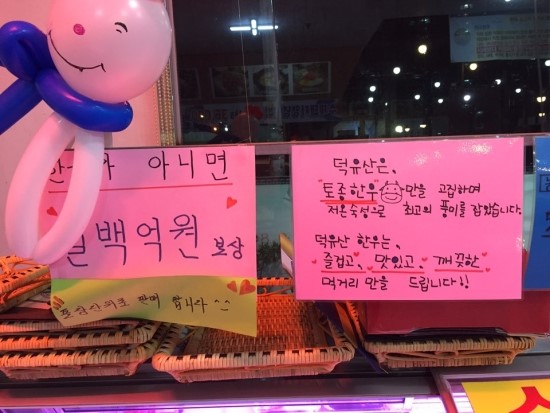 아니면
백억원 보상
판매 합니다 ^^
덕유산은,
토종한우만을 고집하며
저온숙성으로 최고의 풍미를 갖췄습니다.
덕유산 한우는,
즐겁고, 맛있고, 깨끗한
먹거리 만을 드립니다!!